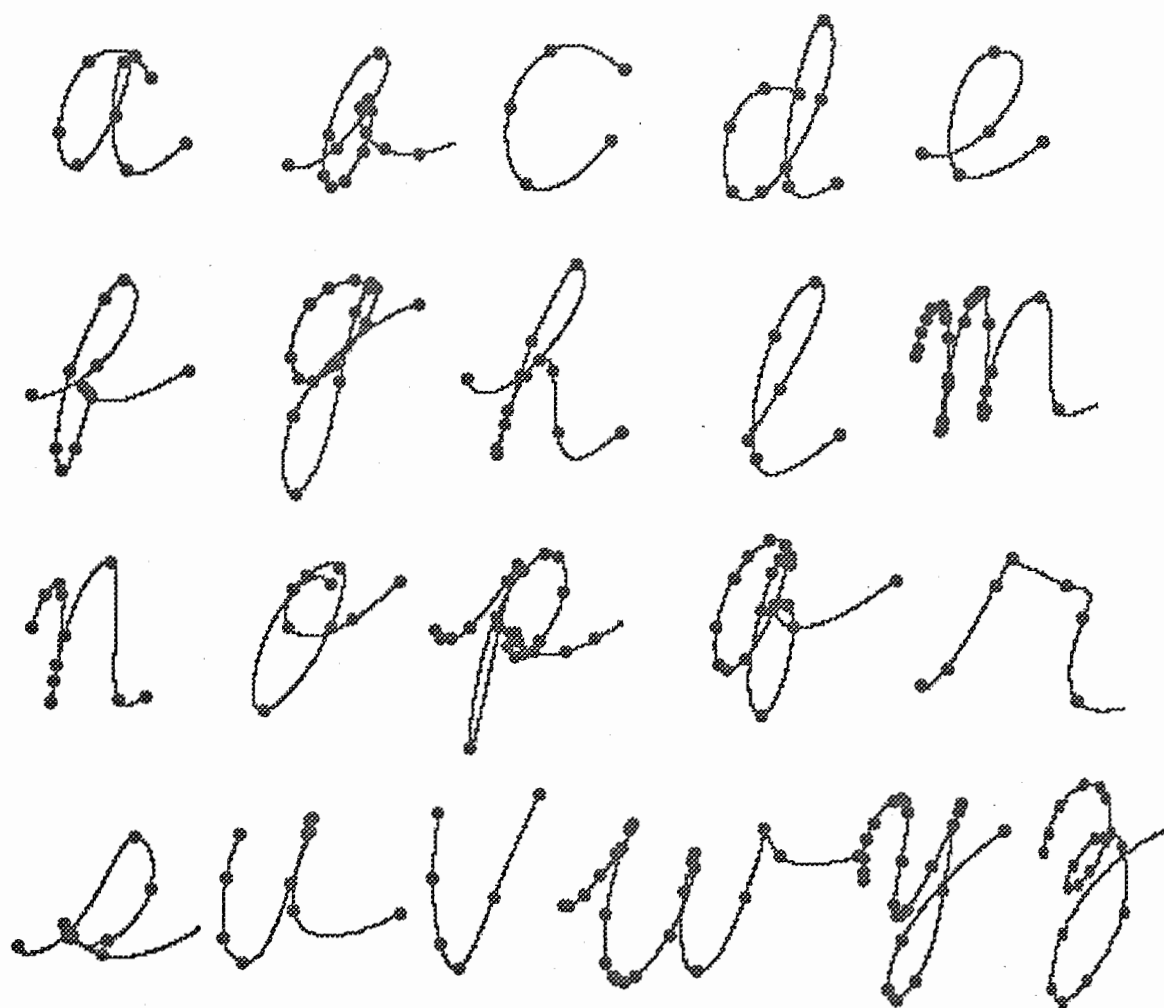 a b c d e
f g h l m
n o p q r
s u v w y z